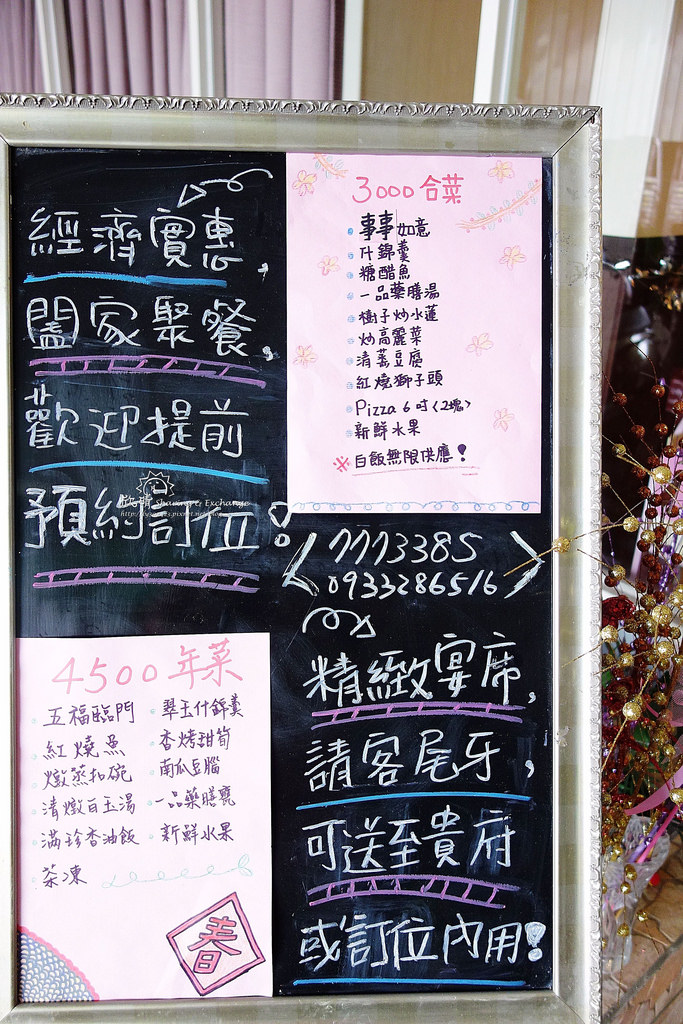 經濟實惠,
闔家聚餐,
歡迎提前
預約訂位!
欣晴 Sharing & Exchange
3000合菜
事事如意
什錦羹
糖醋魚
一品藥膳湯
樹子炒水蓮
炒高麗菜
清蒸豆腐
紅燒獅子頭
Pizza 6吋<2塊>
新鮮水果
※白飯無限供應!
7773385
0933286516
4500年菜
五福臨門
紅燒魚
燉蒸扣碗
清燉白玉湯
滿珍香油飯
茶凍
翠玉什錦羹
杏烤甜筍
南瓜豆腦
一品藥膳甕
新鮮水果
春
精緻宴席,
請客尾牙,
可送至貴府
或訂位內用!